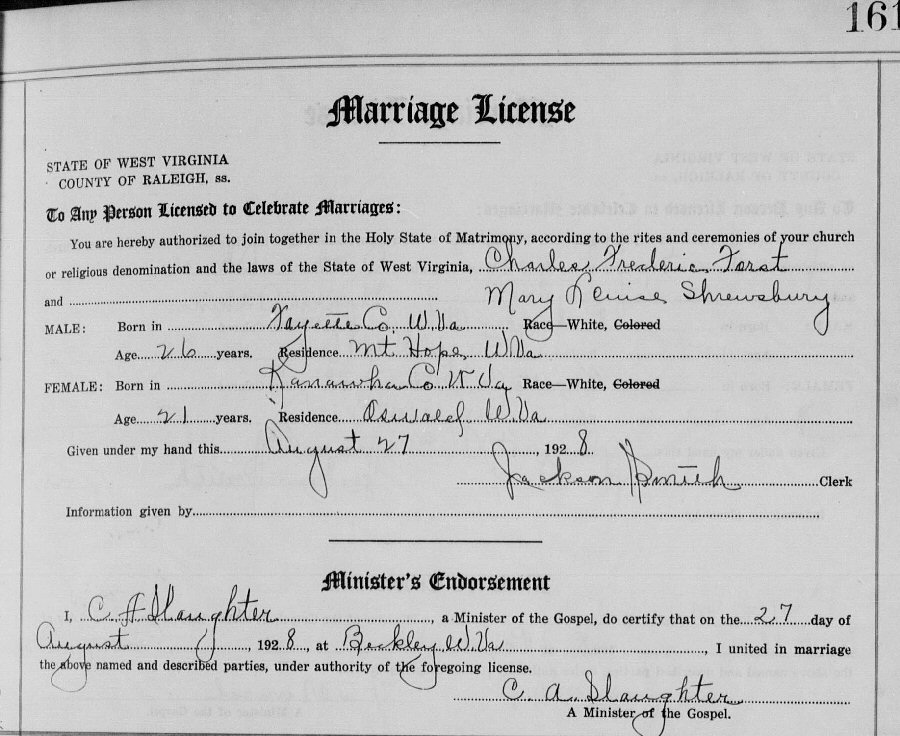 161
Marriage License
STATE OF WEST VIRGINIA
COUNTY OF RALEIGH, ss.
To Any Person Licensed to Celebrate Marriages:
You are hereby authorized to join together in the Holy State of Matrimony, according to the rites and ceremonies of your church
or religious denomination and the laws of the State of West Virginia, Charles Frederic Forst
and Mary Louise Shrewsbury
MALE: Born in Fayette Co, W. Va Race—White, Colored
Age 26 years. Residence Mt Hope, W Va
FEMALE: Born in Kanawha Co W Va Race—White, Colored
Age 21 years. Residence Oswald, W. Va
Given under my hand this August 27, 1928
Jackson Smith Clerk
Information given by
Minister's Endorsement
I, C A Slaughter, a Minister of the Gospel, do certify that on the 27 day of
August, 1928, at Beckley W. Va, I united in marriage
the above named and described parties, under authority of the foregoing license.
C. A. Slaughter
A Minister of the Gospel.